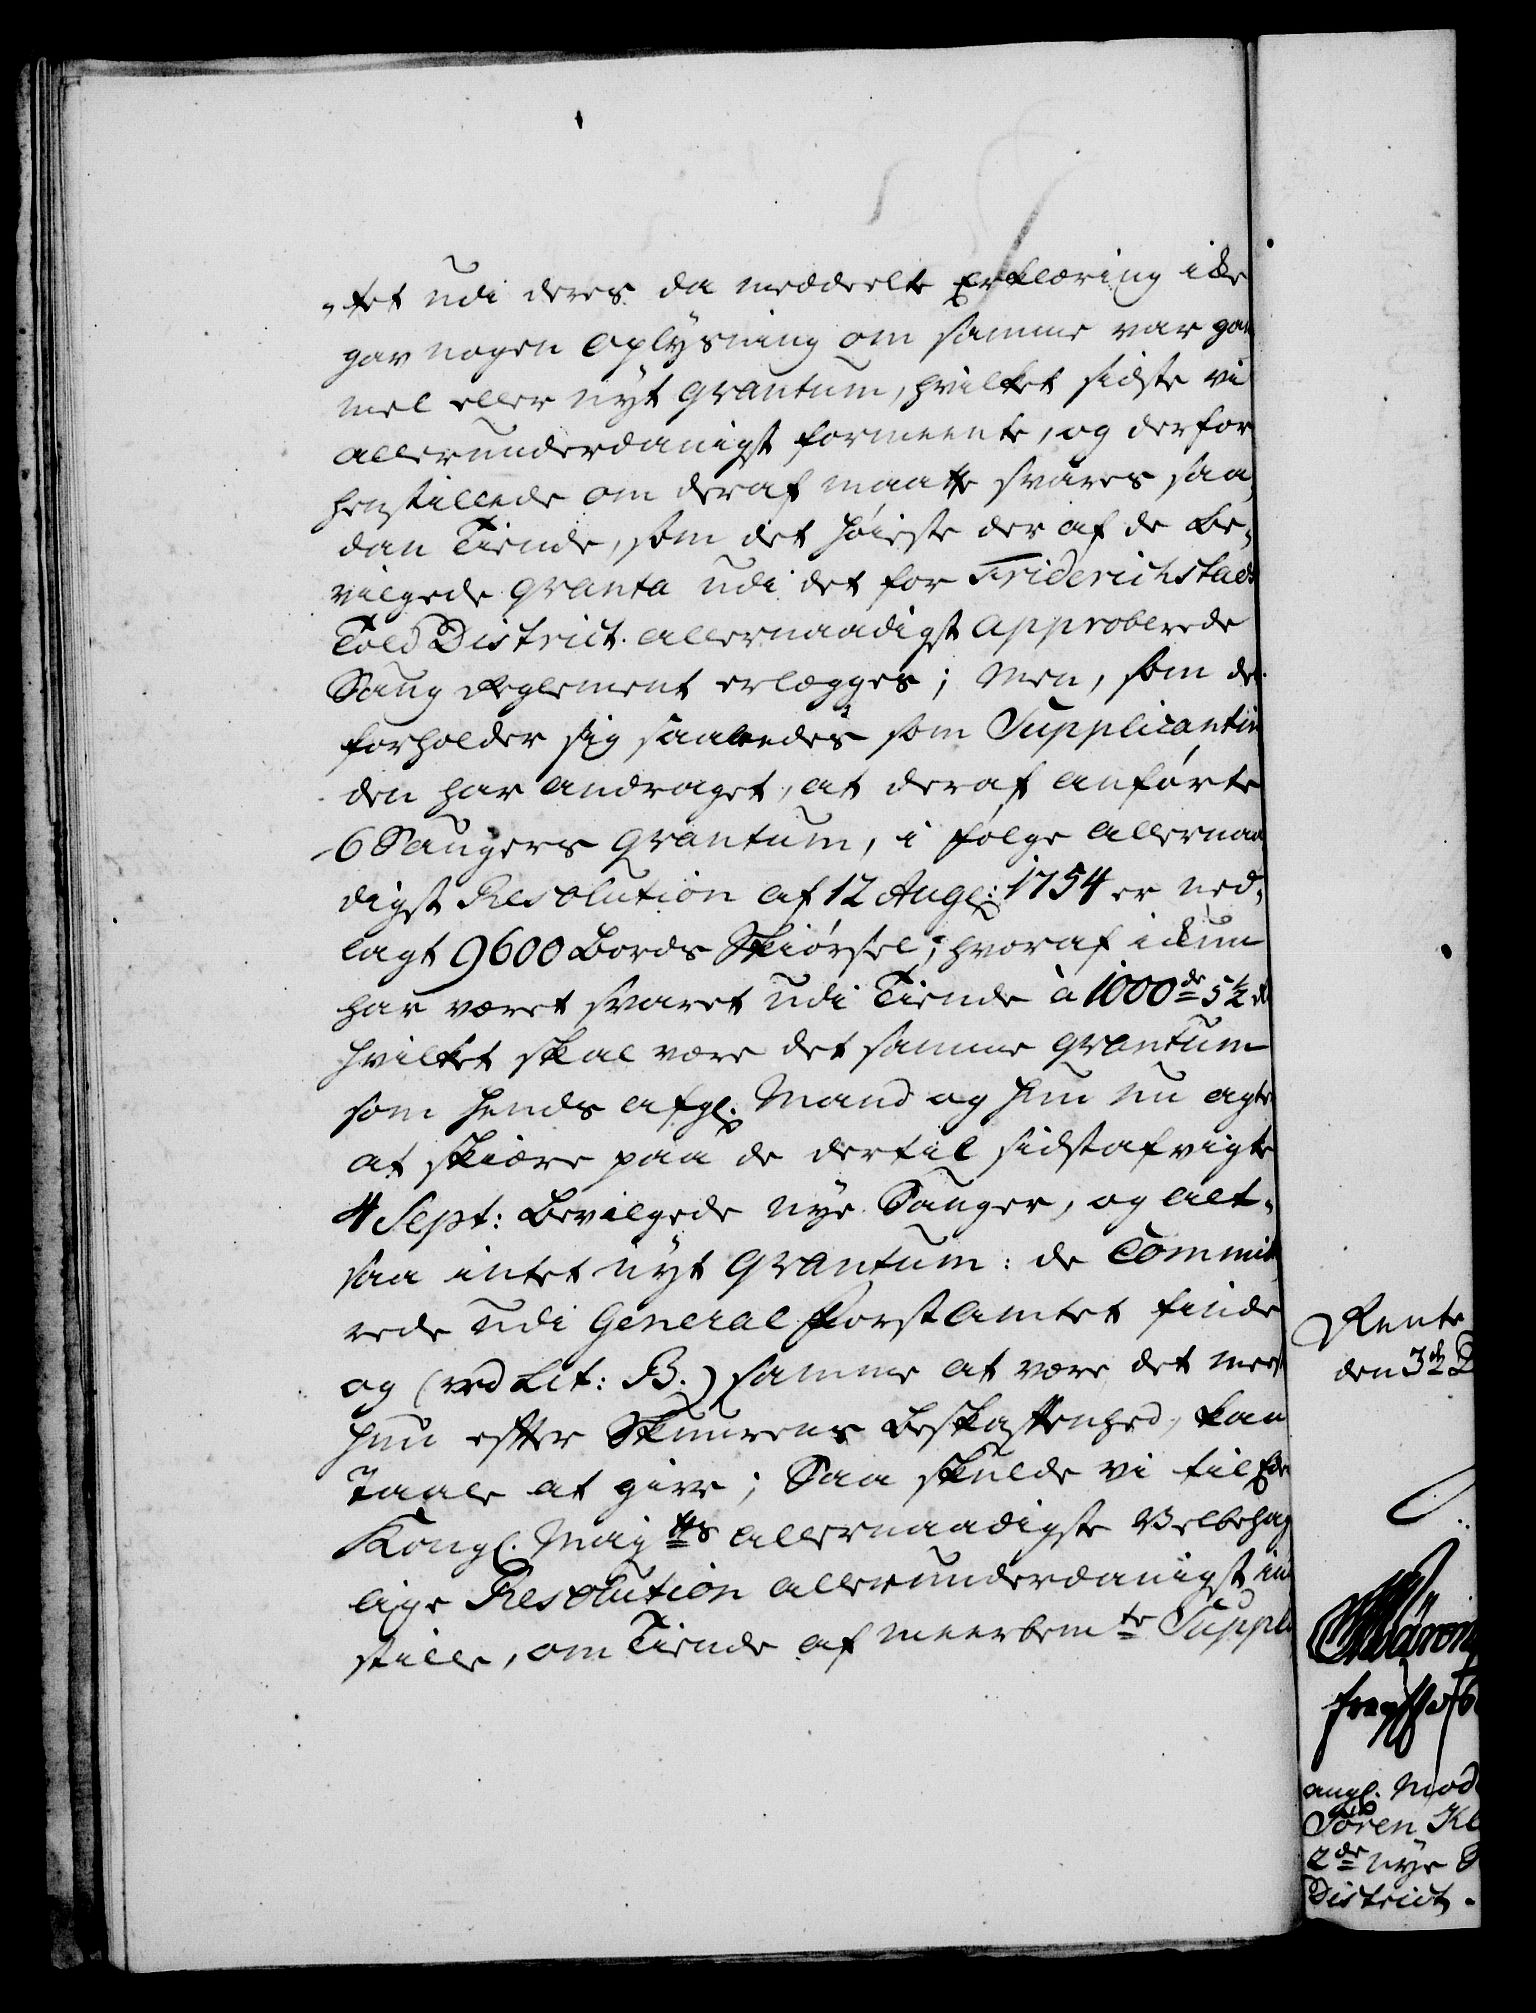 -tet udi deres da meddeelte Erklæring icke
gav nogen Oplysning om samme var gam
mel eller nyt qvantum, hvilket sidste vi
allerunderdanigst formeente, og derfor
henstillede om deraf maatte svares saa,
dan Tiende, som det høieste der af de be,
vilgede qvanta udi det for Friderichstads
Told District allernaadigst approberede
Saug Reglement erlægges; Men, som det
forholder sig saaledes som Supplicantin
den har andraget, at deraf anførte
6 Saugers qvantum, i følge allernaa
digst Resolution af 12 Aug: 1754 er ned,
lagt 9600 Bords Skiørsel, hvoraf ickun
har været svaret udi Tiende à 1000de 5½ rd
hvilket skal være det samme qvantum
som hends afgl. Mand og hun nu agte
at skiære paa de dertil sidstafvigte
4 Sept: bevilgede nye Sauger, og alt,
saa intet nyt qvantum: de Commit
rede udi General Forst Amtet finde
og (ved Lit: B.) samme at være det meest
hun efter Skovens beskaffenhed, kan
taale at give; Saa skulde vi til Eders
Kongl. Mayts allernaadigste Velbehag
lige Resolution allerunderdanigst ind
stille, om Tiende af meerbemte Suppli
Rente
den 3de D
angl. Mod
Sören Kl
2de nye S
District.